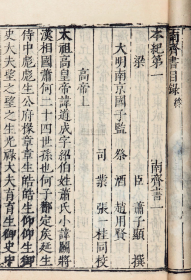 南齊書目錄終
本紀第一　南齊書一
梁　臣蕭子顯撰
大明南京國子監祭酒趙用賢
司業張一桂同校
高帝上
太祖高皇帝諱道成字紹伯姓蕭氏小諱鬬將
漢相國蕭何二十四世孫也何子酇定侯延生
侍中彪彪生公府掾章章生皓皓生仰仰生御
史大夫望之望之生光祿大夫育育生御史中